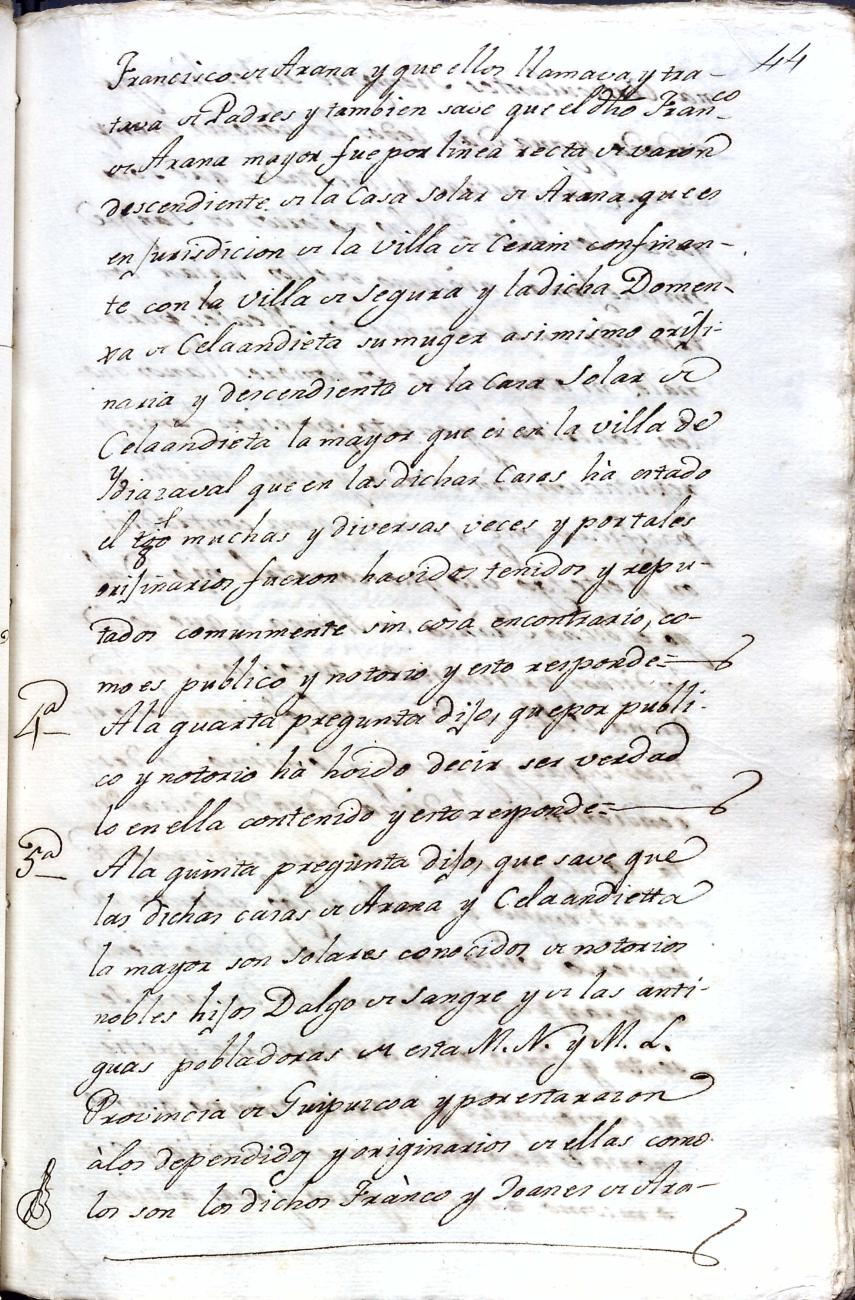 44
Francisco de Arana y que ellos llamava y tra-
tava de Padres y tambien save que el dho Fran.co
de Arana mayor fue por linea recta de varon
descendiente de la Casa solar de Arana que es
en Jurisdicion de la villa de Cerain confinan-
te con la villa de Segura y la dicha Domen-
xa de Celaandieta su muger asimismo oriji-
naria y descendienta de la Casa Solar de
Celaandieta la mayor que es en la villa de
Ydiazaval que en las dichas Casas hà estado
el tgō muchas y diversas veces y por tales
orijinarios fueron havidos tenidos y repu-
tados comunmente sin cosa encontrario, co-
mo es publico y notorio y esto responde=
4a A la quarta pregunta dijo, que por publi-
co y notorio hà hoido decir ser verdad
lo en ella contenido y esto responde=
5a A la quinta pregunta dijo, que save que
las dichas casas de Arana y Celaandietta
la mayor son solares conocidos de notorios
nobles hijos Dalgo de sangre y de las anti-
guas pobladoras de esta M. N. y M. L.
Provincia de Guipuzcoa y por esta razon
à los dependidos y originarios de ellas como
los son los dichos Frànco y Joanes de Ara-